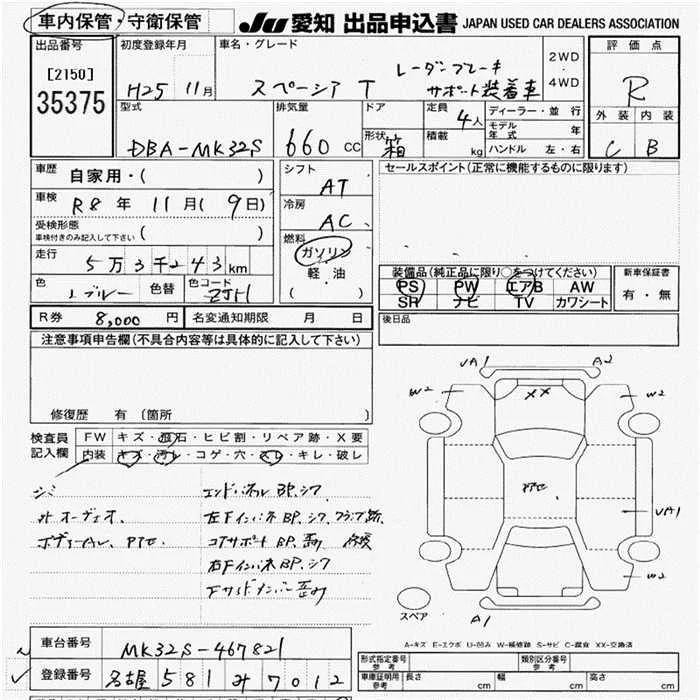 車内保管・守衛保管
JU 愛知 出品申込書 JAPAN USED CAR DEALERS ASSOCIATION
出品番号
[2150]
35375
初度登録年月
H25 11月
車名・グレード
スペーシア T
レーダーブレーキ
サポート装着車
2WD
4WD
評価点
R
外装 内装
C B
型式
DBA-MK32S
排気量
660 CC
ドア
形状
箱
定員
4人
積載
kg
ディーラー・並行
モデル年式 年
ハンドル 左・右
車歴
自家用・( )
車検
R8 年 11月( 9日)
受検形態
車検付きのみ記入して下さい ( )
走行
5万3千243km
色
ブルー
色替
色コード
ZJH
シフト
AT
冷房
AC
燃料
ガソリン
軽油
( )
セールスポイント(正常に機能するものに限ります)
装備品(純正品に限り○をつけてください)
PS PW エアB AW
SR ナビ TV カワシート
新車保証書
有・無
R券 8,000 円
名変通知期限 月 日
後日品
注意事項申告欄(不具合内容等は具体的に記入して下さい)
修復歴 有 (箇所 )
検査員
記入欄
FW キズ・飛石・ヒビ割・リペア跡・X要
内装 キズ・汚レ・コゲ・穴・スレ・キレ・破レ
シミ
オーディオ
エンドパネル BP. シワ
左下インパネ BP. シワ
コアサポート BP.
右下インパネ BP. シワ
VA1
A2
W2
XX
W2
VA1
W2
A1
スペア
A-キズ E-エクボ U-凹み W-補修跡 S-サビ C-腐食 XX-交換済
車台番号
MK32S-467821
登録番号
名古屋 581 み 7012
形式指定番号
参考
類別区分番号
参考
車庫証明用
参考
長さ cm
幅 cm
高さ cm